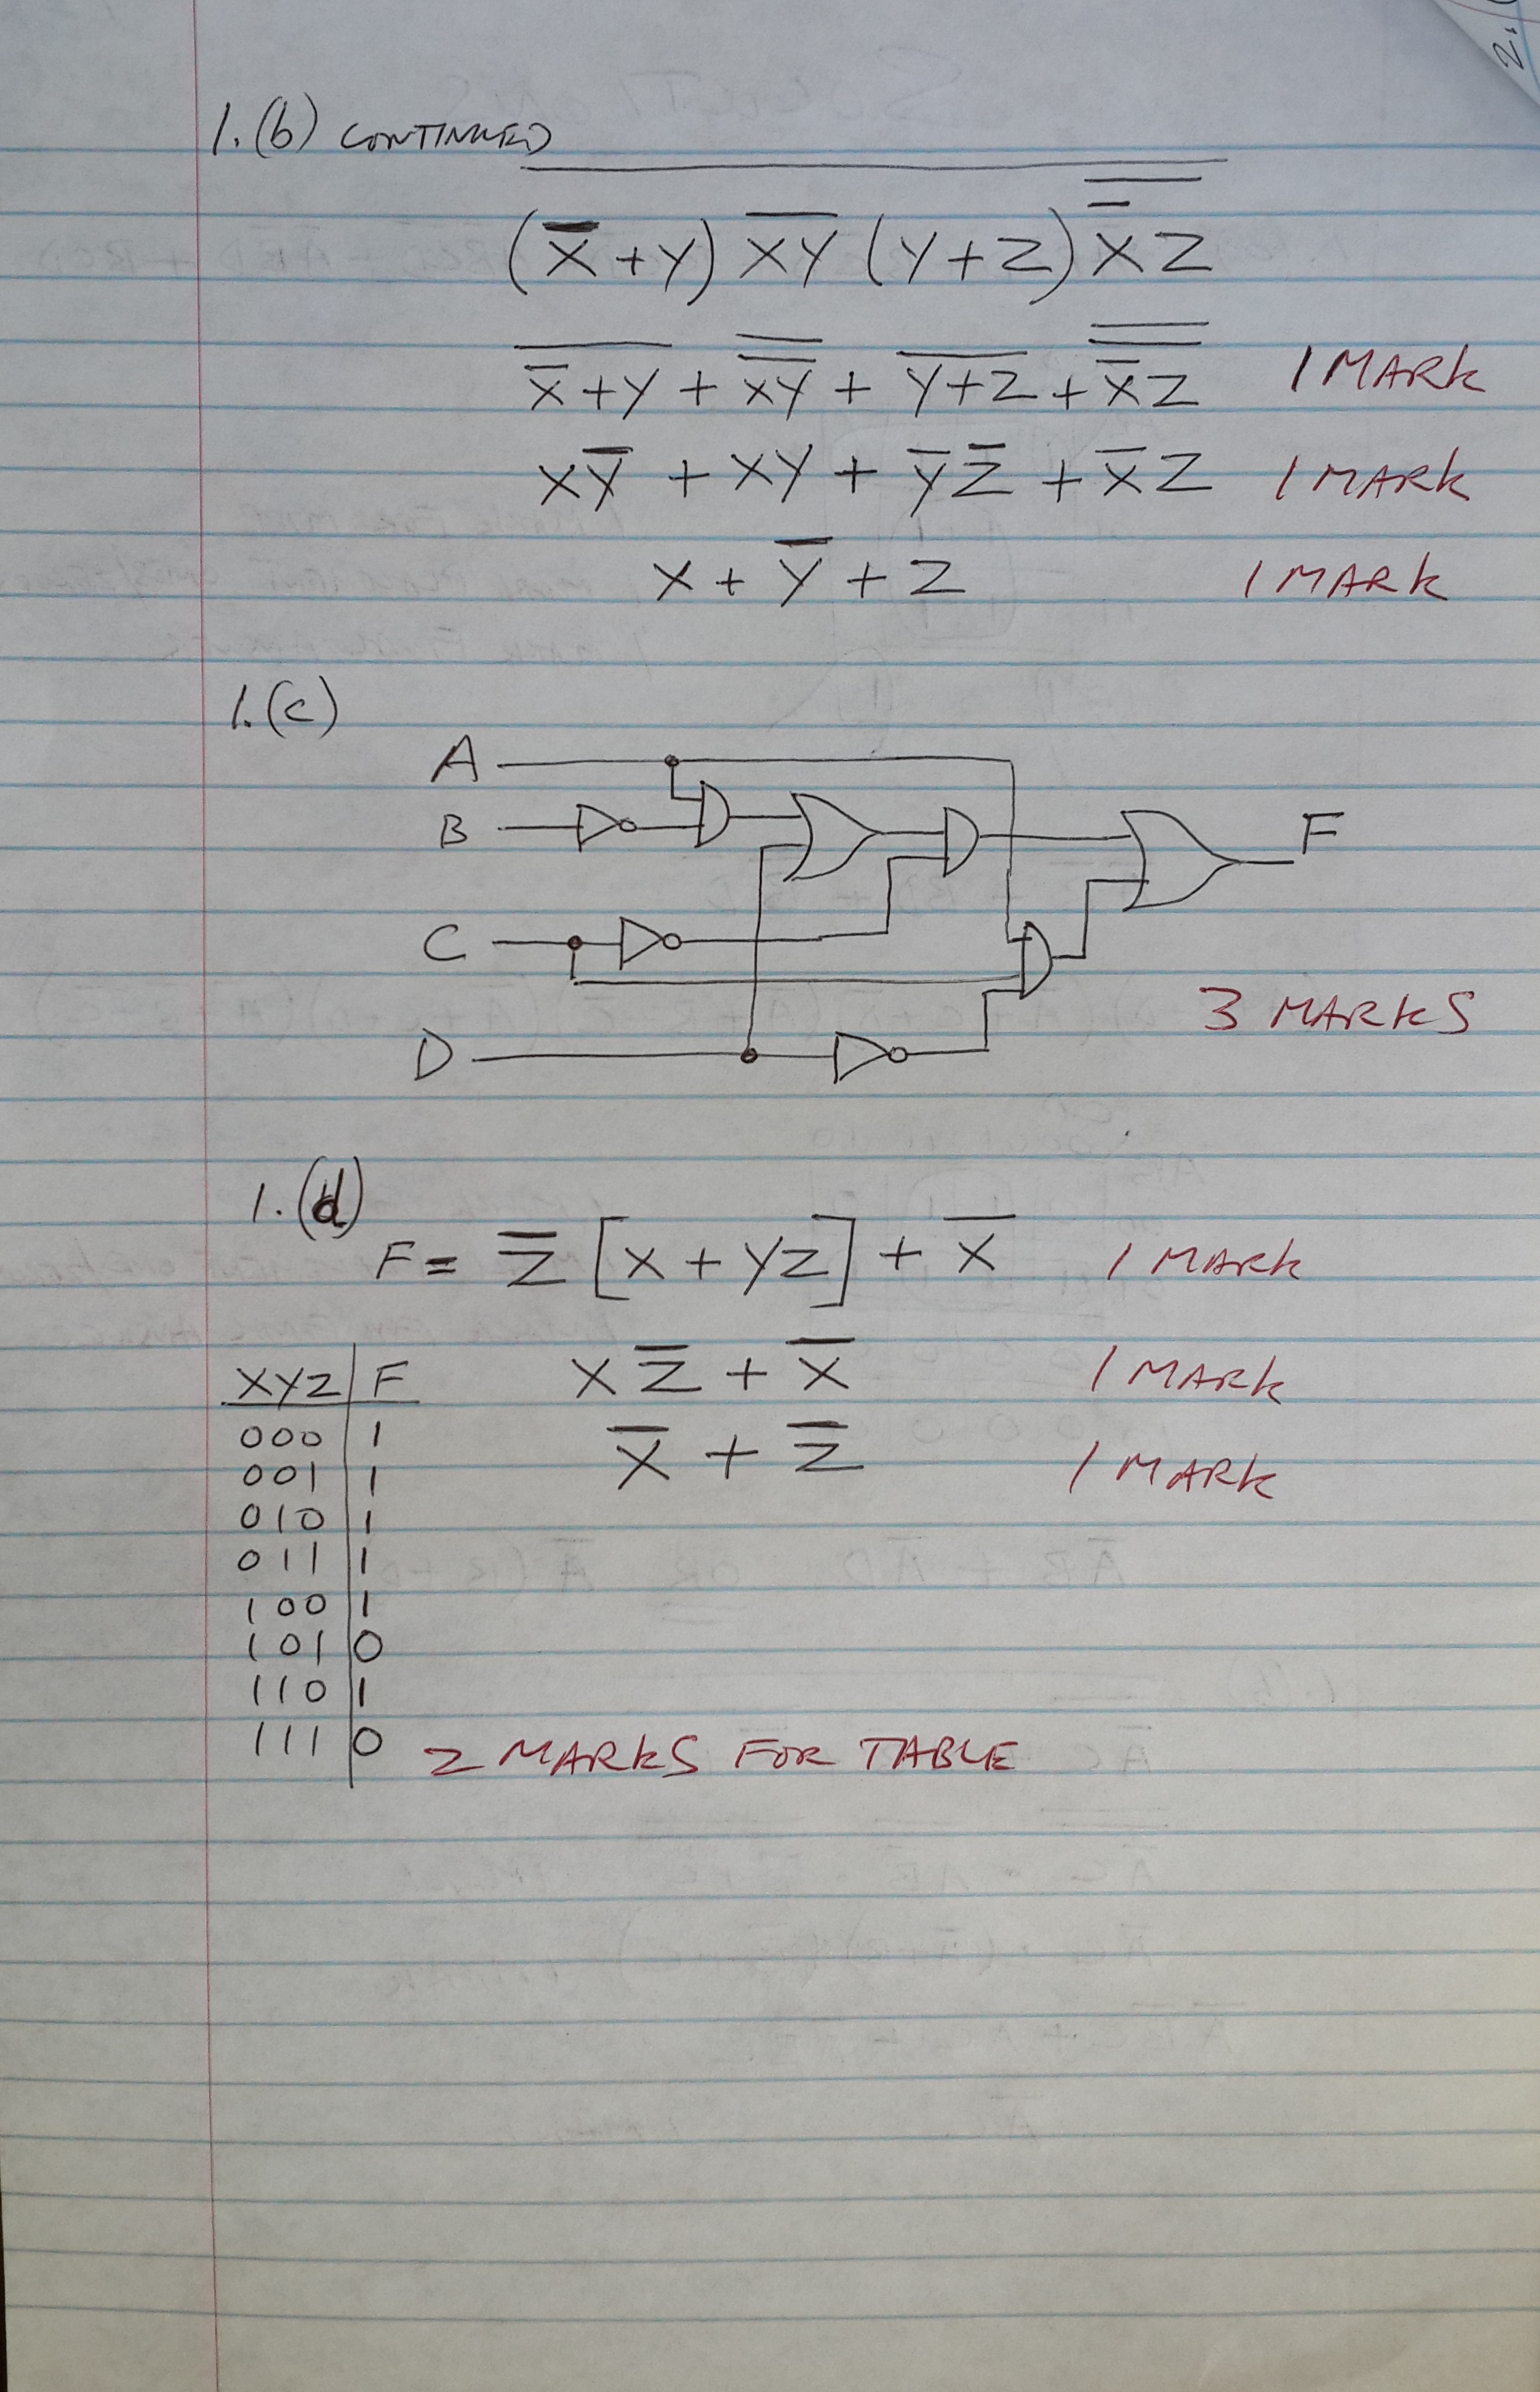 2.
1.(b) CONTINUED
(X̅+Y) X̅Y̅ (Y+Z) X̿Z̿
X̅+Y + XY + Y+Z + X̅Z 1 MARK
XY̅ + XY + Y̅Z̅ + X̅Z 1 MARK
X + Y̅ + Z 1 MARK
1.(c)
A
B F
C
3 MARKS
D
1.(d)
F = Z̅ [X + YZ] + X̅ 1 MARK
XYZ F XZ̅ + X̅ 1 MARK
000 1 X̅ + Z̅ 1 MARK
001 1
010 1
011 1
100 1
101 0
110 1
111 0 2 MARKS FOR TABLE